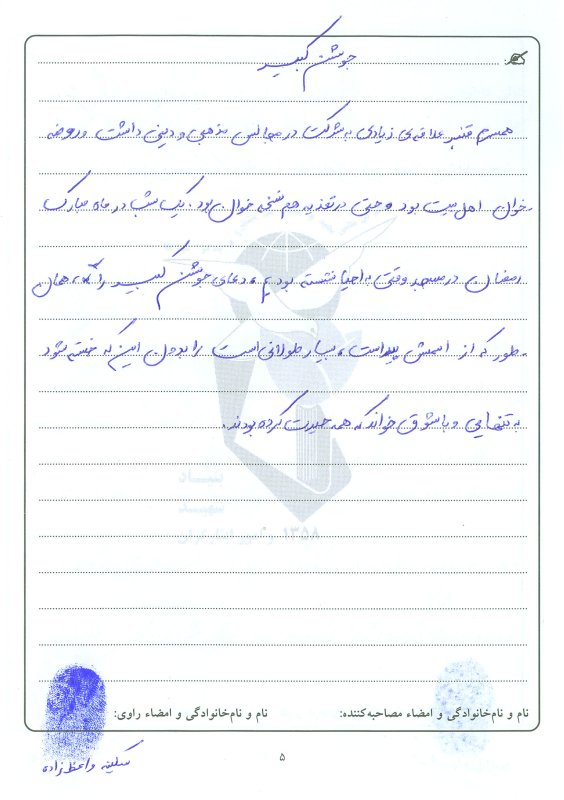 جوشن کبیر
همسرم قنبر علاقه‌ی زیادی به شرکت در مجالس مذهبی و دینی داشت و روضه
خوان اهل بیت بود و حتی در تعذیه هم نسخه خوان بود. یک شب در ماه مبارک
رمضان در مسجد وقتی به احیا نشسته بودیم، دعای جوشن کبیر را که همان
طور که از اسمش پیداست، بسیار طولانی است را بدون این که خسته شود
به تنهایی و با شوق خواند که همه حیرت کرده بودند.
بنیاد
شهید
۱۳۵۸
نام و نام‌خانوادگی و امضاء مصاحبه‌کننده:
نام و نام‌خانوادگی و امضاء راوی:
سکینه واعظ زاده
۵